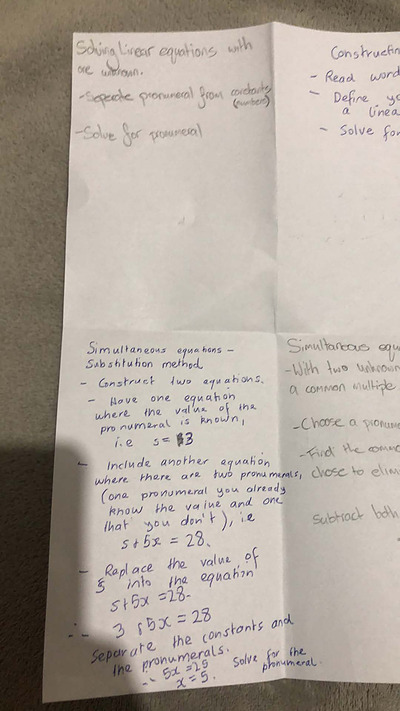 Solving linear equations with
one unknown.
- Seperate pronumeral from constants
(numbers)
- Solve for pronumeral
Constructin
- Read word
- Define yo
a linea
- Solve for
Simultaneous equations -
Substitution method
- Construct two equations.
- Have one equation
where the value of the
pronumeral is known,
i.e s = 3
- Include another equation
where there are two pronumerals,
(one pronumeral you already
know the value and one
that you don't), i.e
s+5x = 28.
- Replace the value of
s into the equation
s+5x = 28.
∴ 3 + 5x = 28
Separate the constants and
the pronumerals.
∴ 5x = 25
x = 5.
Solve for the
pronumeral.
Simultaneous equa
- With two unknown
a common multiple
- Choose a pronume
- Find the commo
chose to elim
Subtract both